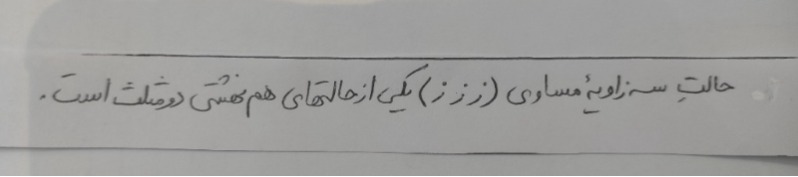 حالتِ سه زاویهٔ مساوی (ز ز ز) یکی از حالتهای هم نهشتی دو مثلث است.